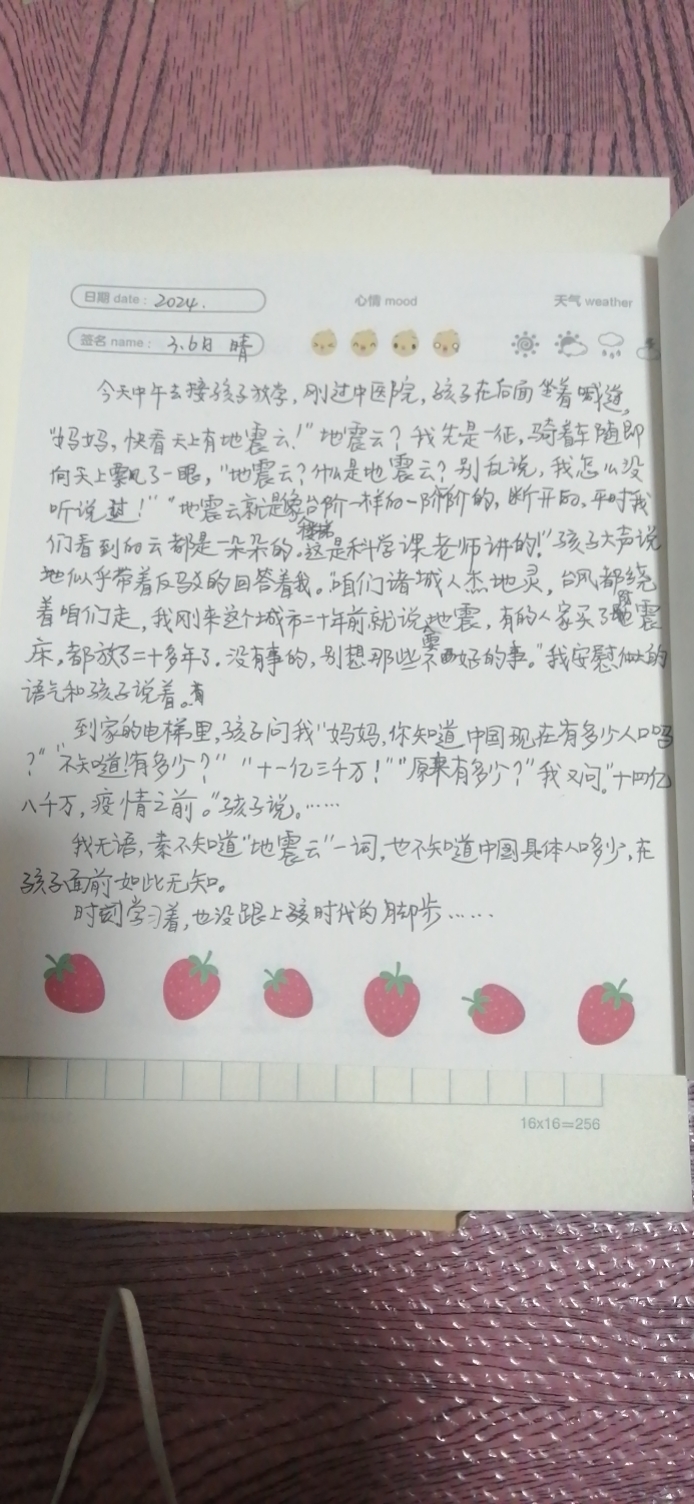 日期 date： 2024.
心情 mood
天气 weather
签名 name： 3.6日 晴
今天中午去接孩子放学，刚过中医院，孩子在后面坐着喊道，
“妈妈，快看天上有地震云！”地震云？我先是一征，骑着车随即
向天上瞟了一眼，“地震云？什么是地震云？别乱说，我怎么没
听说过！”“地震云就是像台阶一样的一阶阶的，断开的，平时我
楼梯
们看到的云都是一朵朵的。这是科学课老师讲的！”孩子大声说
地似乎带着反驳的回答着我。“咱们诸城人杰地灵，台风都绕
着咱们走，我刚来这个城市二十年前就说要地震，有的人家买了防震
床，都放了二十多年了。没有事的，别想那些不好的事。”我安慰似的
语气和孩子说着。
到家的电梯里，孩子问我“妈妈，你知道中国现在有多少人口吗
？”“不知道！有多少？”“十一亿三千万！”“原来有多少？”我又问。“十四亿
八千万，疫情之前。”孩子说。……
我无语，素不知道“地震云”一词，也不知道中国具体人口多少，在
孩子面前如此无知。
时刻学习着，也没跟上孩时代的脚步……
16x16=256